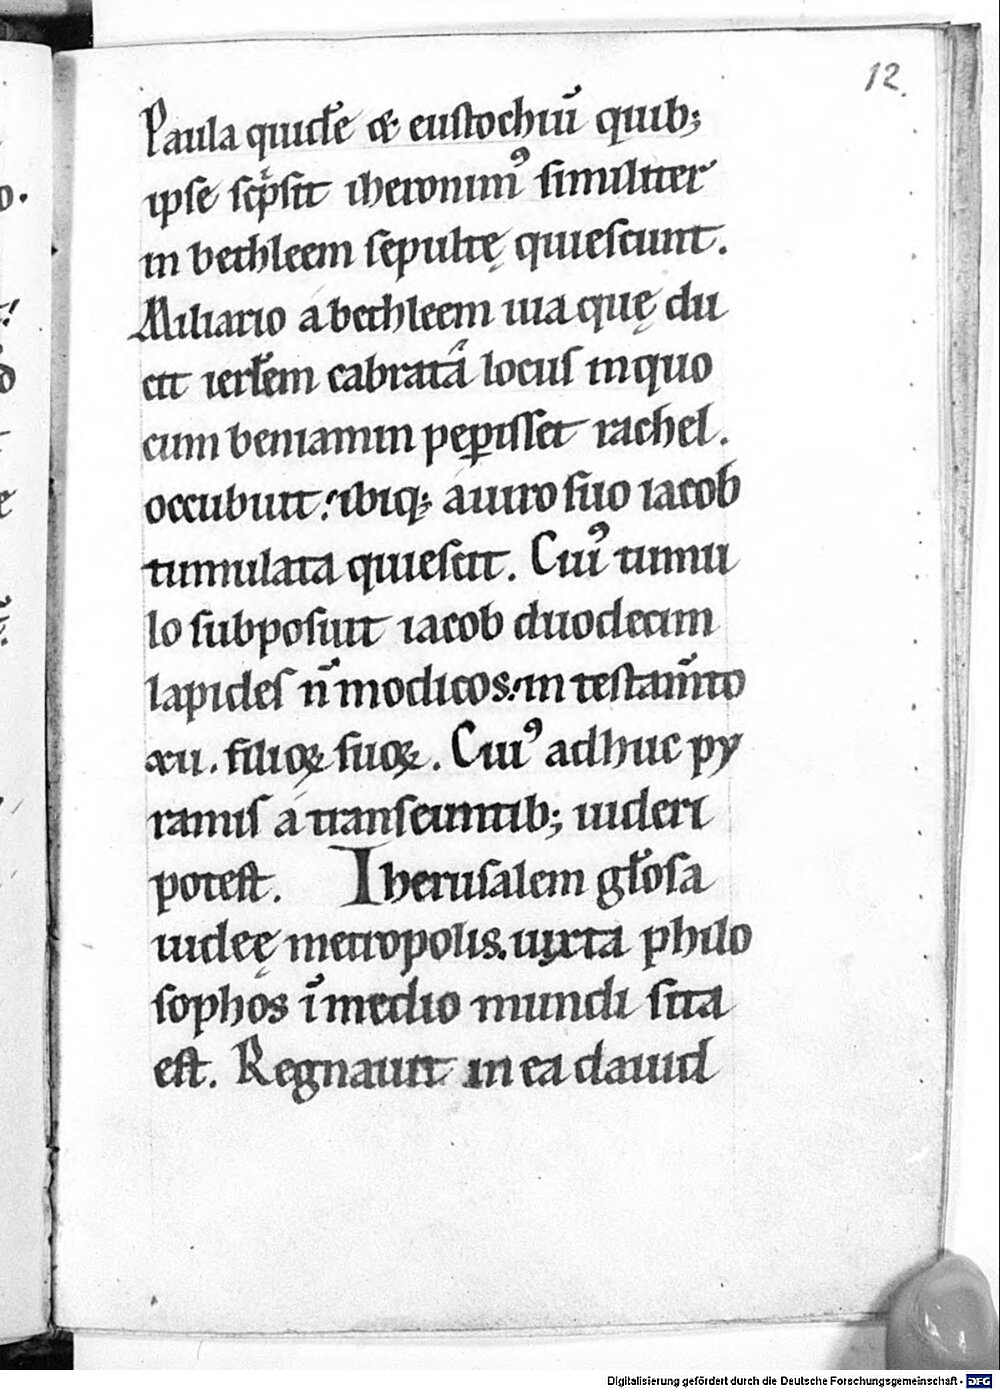 12.
Paula quidē & eustochiū quib;
ipse scͥpsit iheronimꝰ similiter
in bethleem sepultę quiescunt.
Miliario a bethleem uia quę du
cit ierłem cabratā locus in quo
cum beniamin peꝑisset rachel.
occubuit: ibiq; a uiro suo iacob
tumulata quiescit. Cuiꝰ tumu
lo subposiuit iacob duodecim
lapides n̄ modicos: in testam̄to
xii. filioꝝ suoꝝ. Cuiꝰ adhuc py
ramis a transeuntib; uideri
potest. Iherusalem gło̅sa
iudeę metropolis. iuxta philo
sophos ī medio mundi sita
est. Regnauit in ea dauid
Digitalisierung gefördert durch die Deutsche Forschungsgemeinschaft - DFG